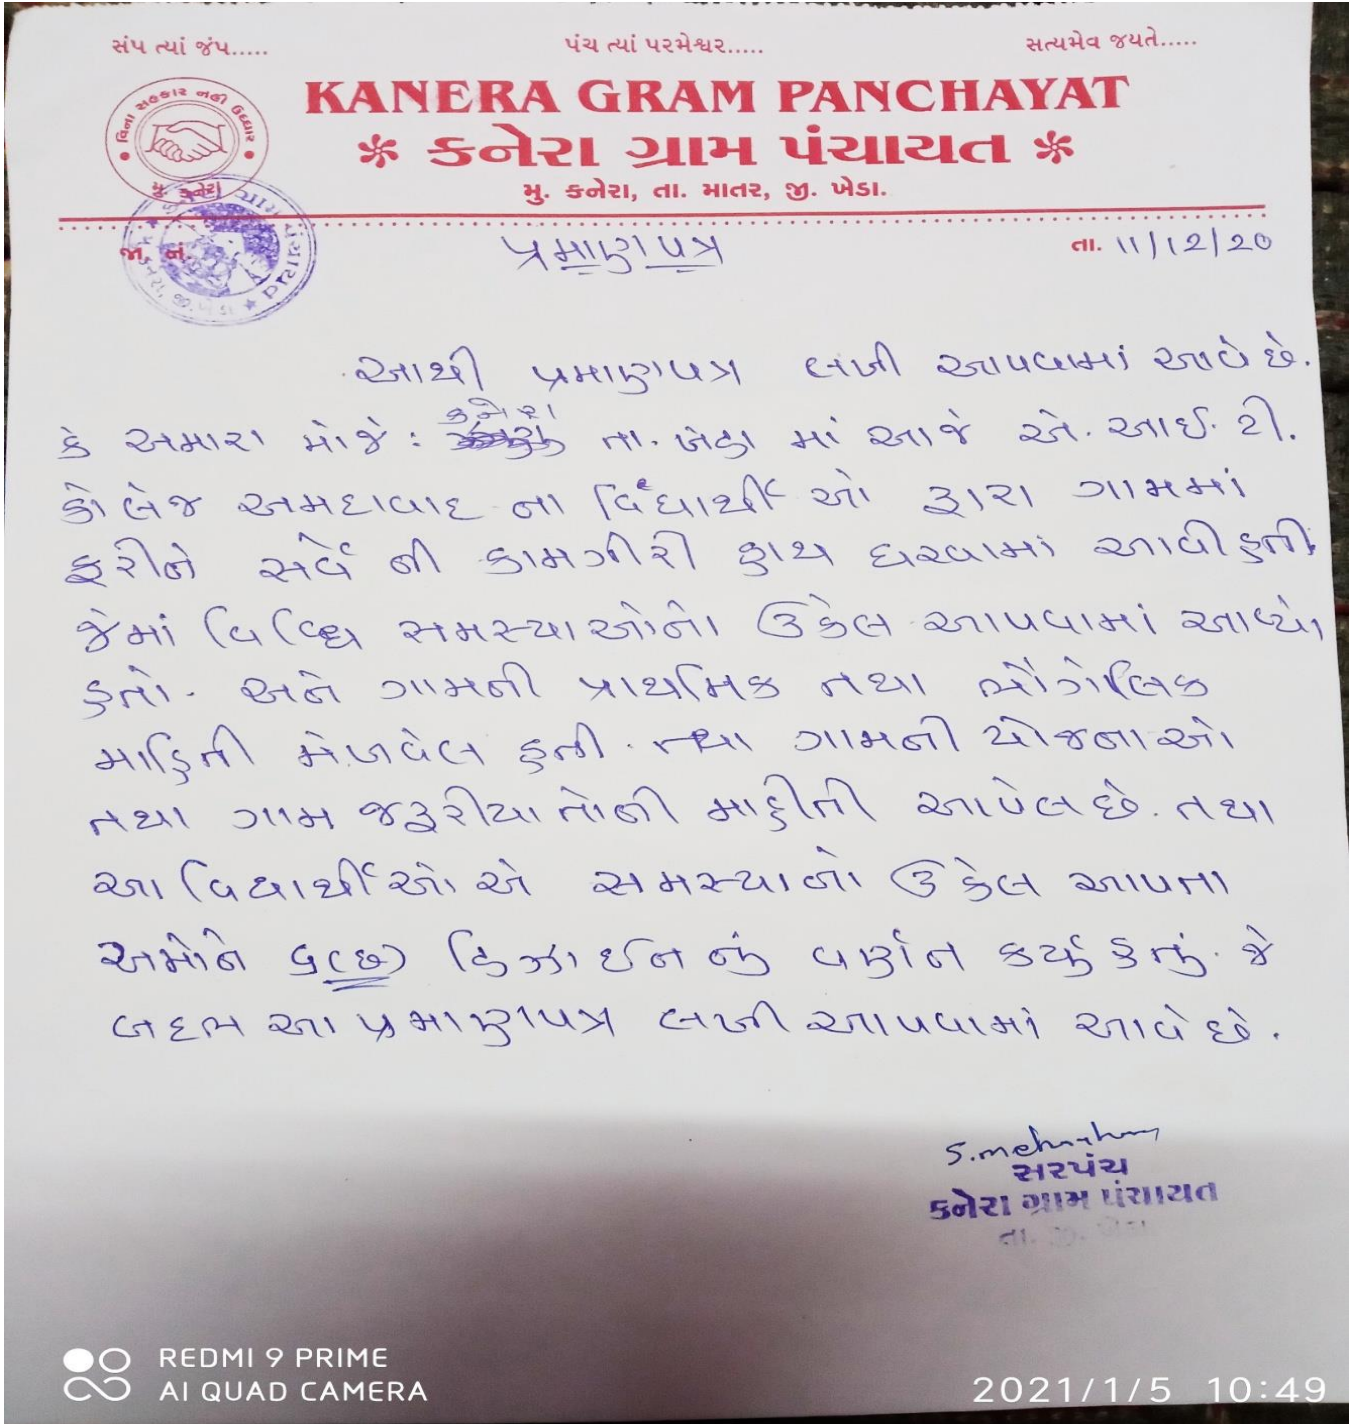 સંપ ત્યાં જંપ.....
પંચ ત્યાં પરમેશ્વર.....
સત્યમેવ જયતે.....
વિના સહકાર નહી ઉધ્ધાર
મુ. કનેરા
KANERA GRAM PANCHAYAT
કનેરા ગ્રામ પંચાયત
મુ. કનેરા, તા. માતર, જી. ખેડા.
જા. નં.
પ્રમાણપત્ર
તા. 11/12/20
આથી પ્રમાણપત્ર લખી આપવામાં આવે છે.
કે અમારા મોજે : કનેરા તા. ખેડા માં આજે એ. આઈ. ટી.
કોલેજ અમદાવાદ ના વિદ્યાર્થી ઓ દ્વારા ગામમાં
ફરીને સર્વે ની કામગીરી હાથ ધરવામાં આવી હતી.
જેમાં વિવિધ સમસ્યાઓનો ઉકેલ આપવામાં આવ્યો
હતો. અને ગામની પ્રાથમિક તથા ભૌગોલિક
માહિતી મેળવેલ હતી. તથા ગામની યોજનાઓ
તથા ગામ જરૂરીયાતોની માહીતી આપેલ છે. તથા
આ વિદ્યાર્થીઓ એ સમસ્યાનો ઉકેલ આપતા
અમોને ૬(છ) ડિઝાઈન નું વર્ણન કર્યું હતું. જે
બદલ આ પ્રમાણપત્ર લખી આપવામાં આવે છે.
સરપંચ
કનેરા ગ્રામ પંચાયત
તા. જી. ખેડા
REDMI 9 PRIME
AI QUAD CAMERA
2021/1/5 10:49